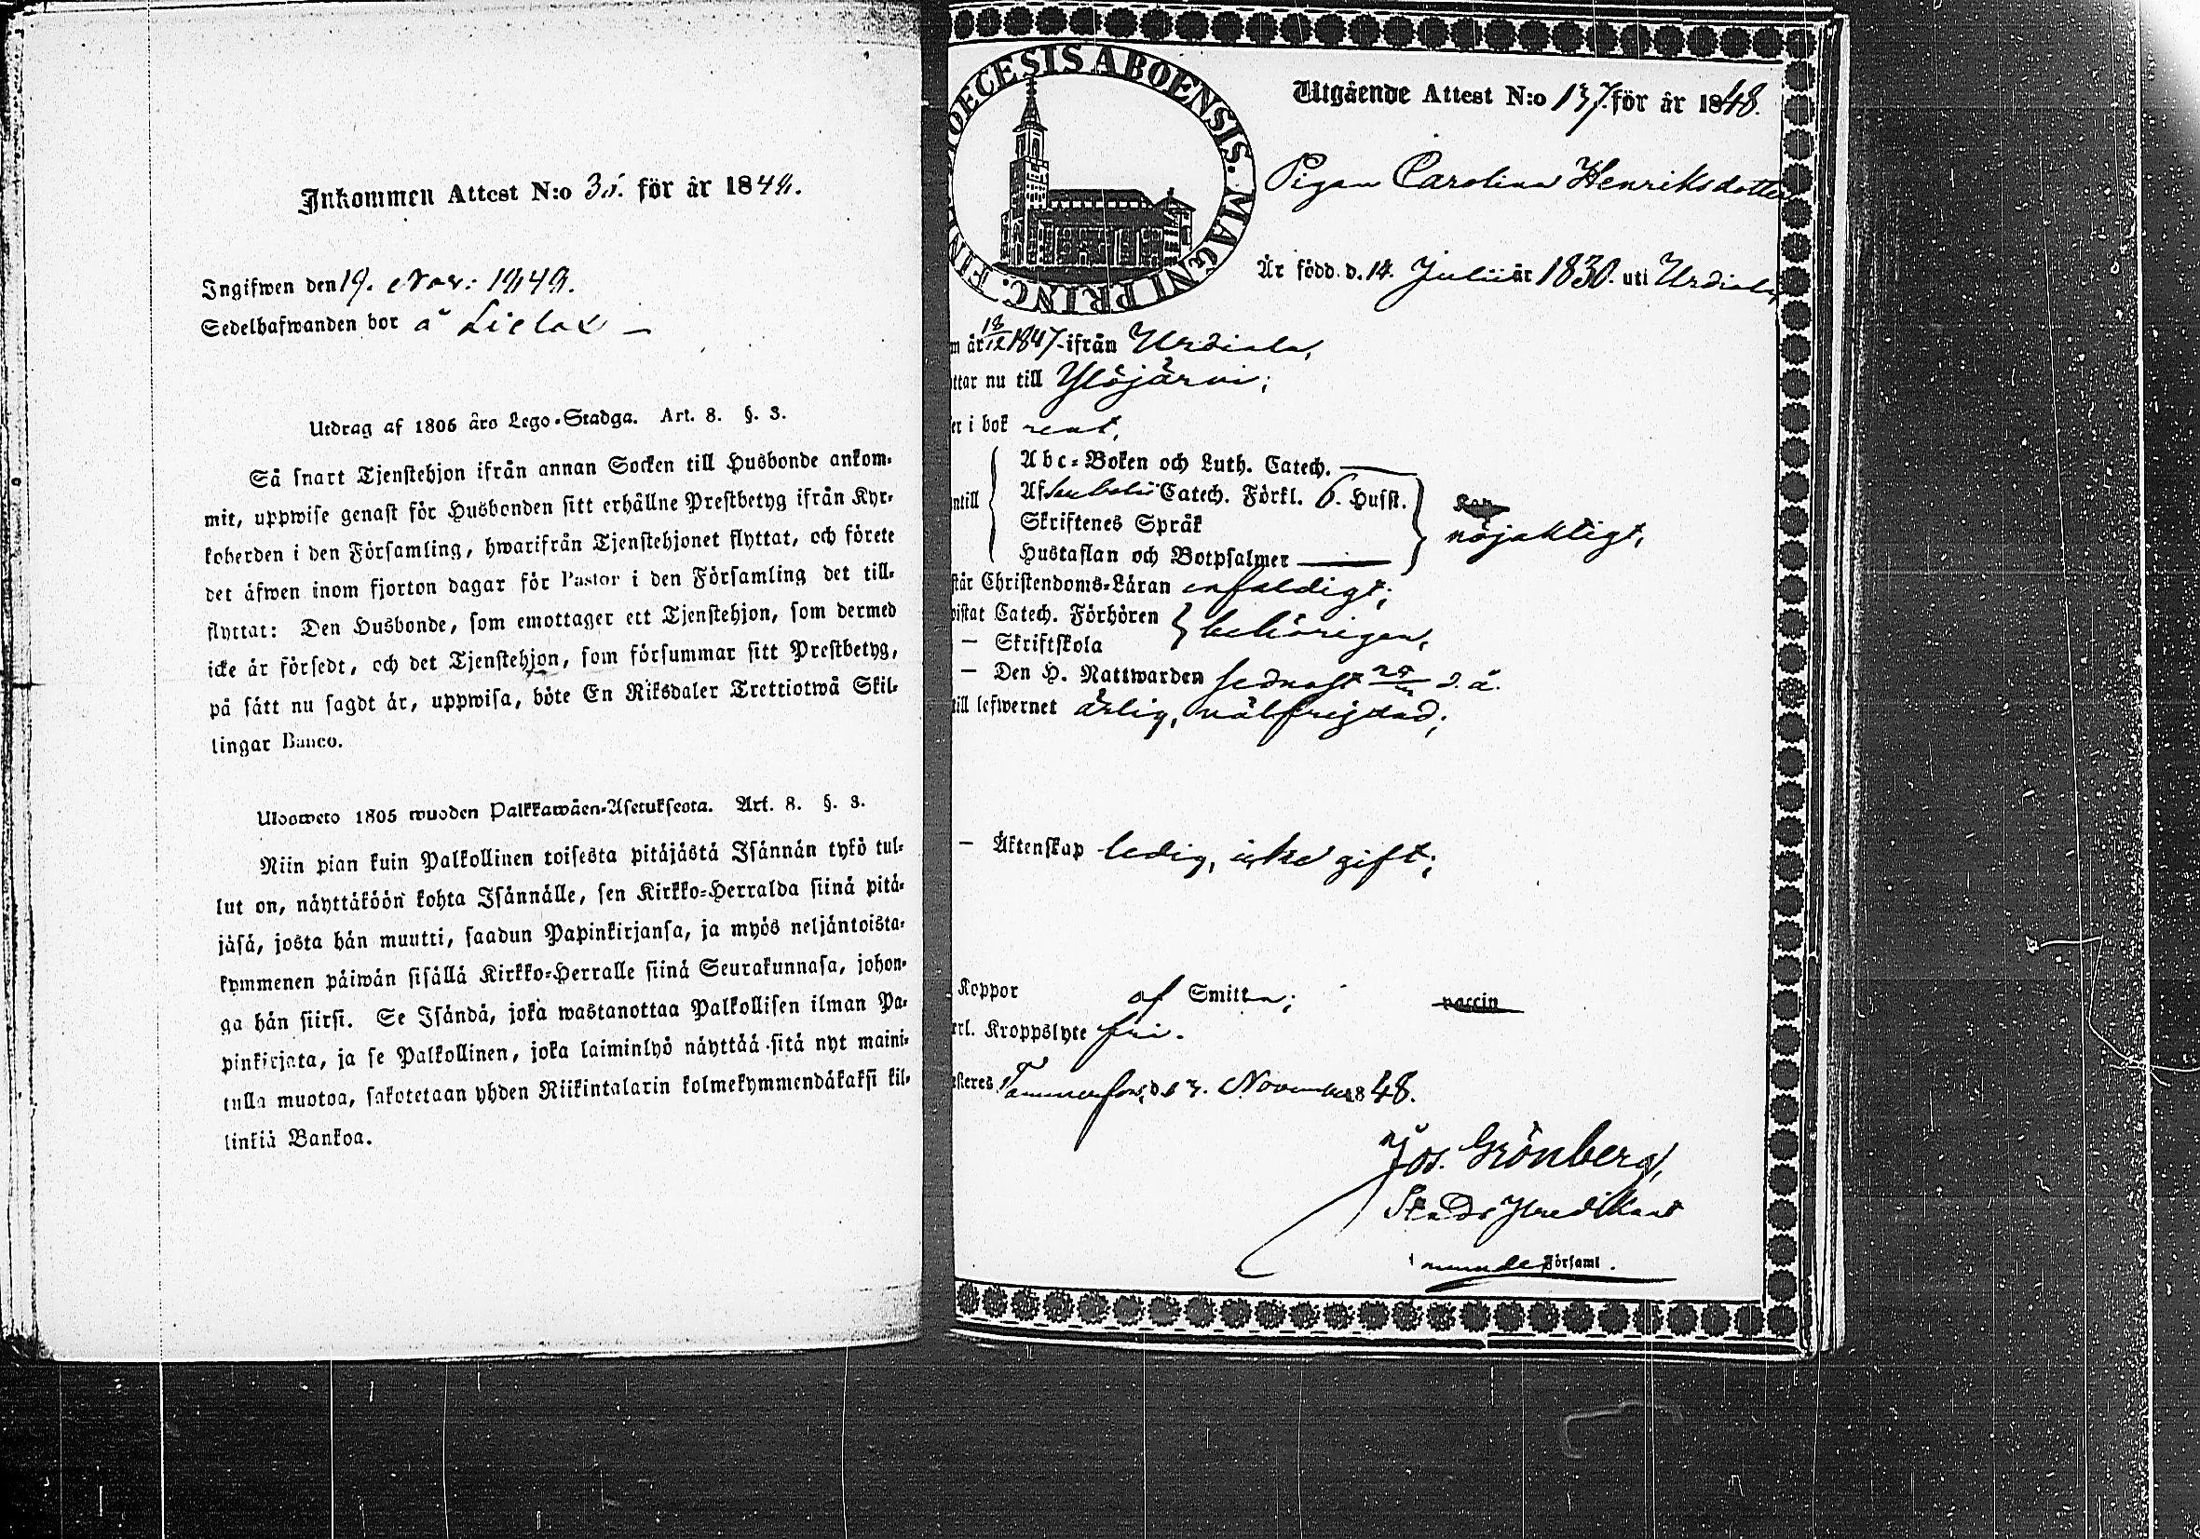 Inkommen Attest N:o 35. för år 1848.
Ingifwen den 19. Nov: 1848.
Sedelhafwanden bor å Lielax
Utdrag af 1805 års Lego-Stadga. Art. 8. §. 3.
Så snart Tjenstehjon ifrån annan Socken till Husbonde ankom-
mit, uppwise genast för Husbonden sitt erhållne Prestbetyg ifrån Kyr-
koherden i den Församling, hwarifrån Tjenstehjonet flyttat, och förete
det äfwen inom fjorton dagar för Pastor i den Församling det till-
flyttat: Den Husbonde, som emottager ett Tjenstehjon, som dermed
icke är försedt, och det Tjenstehjon, som försummar sitt Prestbetyg,
på sätt nu sagdt är, uppwisa, böte En Riksdaler Trettiotwå Skil-
lingar Banco.
Ulosweto 1805 wuoden Palkkawäen-Asetuksesta. Art. 8. §. 3.
Niin pian kuin Palkollinen toisesta pitäjästä Isännän tykö tul-
lut on, näyttäköön kohta Isännälle, sen Kirkko-Herralda siinä pitä-
jäsä, josta hän muutti, saadun Papinkirjansa, ja myös neljäntoista-
kymmenen päiwän sisällä Kirkko-Herralle siinä Seurakunnasa, johon-
ga hän siirsi. Se Isändä, joka wastanottaa Palkollisen ilman Pa-
pinkirjata, ja se Palkollinen, joka laiminlyö näyttää sitä nyt maini-
tulla muotoa, sakotetaan yhden Riikintalarin kolmekymmendäkaksi kil-
linkiä Bankoa.
DIOECESIS ABOENSIS. MAGNI PRINC. FIN
Utgående Attest N:o 137. för år 1848.
Pigan Carolina Henriksdotter
Är född d. 14. Julii år 1830. uti Urdiala
m år 18/12 1847. ifrån Urdiala,
ttar nu till Ylöjärvi;
er i bok rent,
Abc-Boken och Luth. Catech.
Af Catech. Förkl. 6. Husst.
ntill
Skriftenes Språk
nöjaktigt,
Hustaflan och Botpsalmer
står Christendoms-Läran enfaldigt;
vistat Catech. Förhören
behörigen,
— Skriftskola
— Den H. Nattwarden sednast d. å.
till lefwernet ärlig, välfrejdad;
— Äktenskap ledig, icke gift;
Koppor af Smitta; vaccin
erl. Kroppslyte fri.
esteres Tammerfors, d. 13. November 1848.
Jos. Grönberg,
Stads Predikant
Församl.